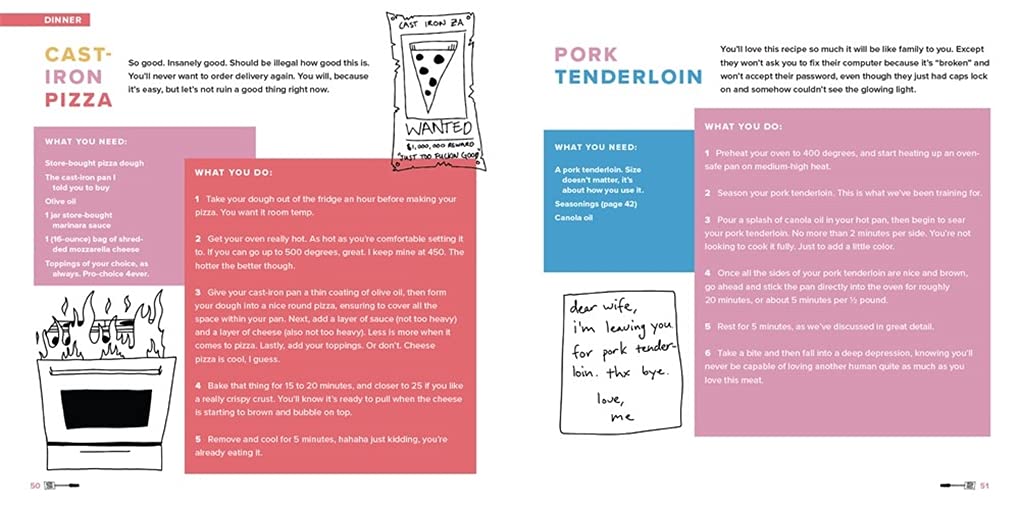 DINNER
CAST-
IRON
PIZZA
So good. Insanely good. Should be illegal how good this is.
You'll never want to order delivery again. You will, because
it's easy, but let's not ruin a good thing right now.
CAST IRON ZA
WANTED
$1,000,000 REWARD
"JUST TOO FUCKIN GOOD"
WHAT YOU NEED:
Store-bought pizza dough
The cast-iron pan I
told you to buy
Olive oil
1 jar store-bought
marinara sauce
1 (16-ounce) bag of shred-
ded mozzarella cheese
Toppings of your choice, as
always. Pro-choice 4ever.
WHAT YOU DO:
1 Take your dough out of the fridge an hour before making your
pizza. You want it room temp.
2 Get your oven really hot. As hot as you're comfortable setting it
to. If you can go up to 500 degrees, great. I keep mine at 450. The
hotter the better though.
3 Give your cast-iron pan a thin coating of olive oil, then form
your dough into a nice round pizza, ensuring to cover all the
space within your pan. Next, add a layer of sauce (not too heavy)
and a layer of cheese (also not too heavy). Less is more when it
comes to pizza. Lastly, add your toppings. Or don't. Cheese
pizza is cool, I guess.
4 Bake that thing for 15 to 20 minutes, and closer to 25 if you like
a really crispy crust. You'll know it's ready to pull when the cheese
is starting to brown and bubble on top.
5 Remove and cool for 5 minutes, hahaha just kidding, you're
already eating it.
50
PORK
TENDERLOIN
You'll love this recipe so much it will be like family to you. Except
they won't ask you to fix their computer because it's "broken" and
won't accept their password, even though they just had caps lock
on and somehow couldn't see the glowing light.
WHAT YOU NEED:
A pork tenderloin. Size
doesn't matter, it's
about how you use it.
Seasonings (page 42)
Canola oil
WHAT YOU DO:
1 Preheat your oven to 400 degrees, and start heating up an oven-
safe pan on medium-high heat.
2 Season your pork tenderloin. This is what we've been training for.
3 Pour a splash of canola oil in your hot pan, then begin to sear
your pork tenderloin. No more than 2 minutes per side. You're not
looking to cook it fully. Just to add a little color.
4 Once all the sides of your pork tenderloin are nice and brown,
go ahead and stick the pan directly into the oven for roughly
20 minutes, or about 5 minutes per ½ pound.
5 Rest for 5 minutes, as we've discussed in great detail.
6 Take a bite and then fall into a deep depression, knowing you'll
never be capable of loving another human quite as much as you
love this meat.
dear wife,
i'm leaving you
for pork tender-
loin. thx bye.
love,
me
51